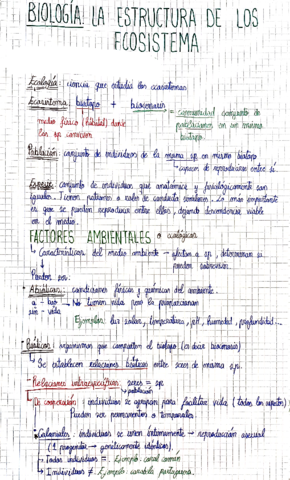 BIOLOGÍA: LA ESTRUCTURA DE LOS
ECOSISTEMA
Ecología: ciencia que estudia los ecosistemas
Ecosistema: biotopo + biocenosis
= comunidad conjunto de
medio físico (hábitat) donde
poblaciones en un mismo
las sp conviven
biotopo.
Población: conjunto de individuos de la misma sp en mismo biotopo
capaces de reproducirse entre sí.
Especie: conjunto de individuos que anatómica y fisiológicamente son
iguales. Tienen patrones a valor de conducta comunes. Lo más importante
es que se puedan reproducir entre ellos, dejando descendencia viable
en el medio.
FACTORES AMBIENTALES o ecológicos
↳ Características del medio ambiente → afectan a sp, determinan su
posible subsistencia.
Pueden ser:
- Abióticos: condiciones físicas y químicas del ambiente.
a - bio → No tienen vida pero la proporcionan
sin - vida
Ejemplos: luz solar, temperatura, pH, humedad, profundidad...
- Bióticos: organismos que comparten el biotopo (es decir biocenosis)
↳ Se establecen relaciones bióticas entre seres de misma sp.
- Relaciones intraespecíficas: seres = sp
= población
De cooperación: individuos se agrupan para facilitar vida (todos los aspectos)
Pueden ser permanentes o temporales
- Coloniales: individuos se unen íntimamente → reproducción asexual
(1 progenitor → genéticamente idénticos)
↳ Todos individuos =. Ejemplo: coral común
↳ Individuos ≠. Ejemplo: carabela portuguesa.